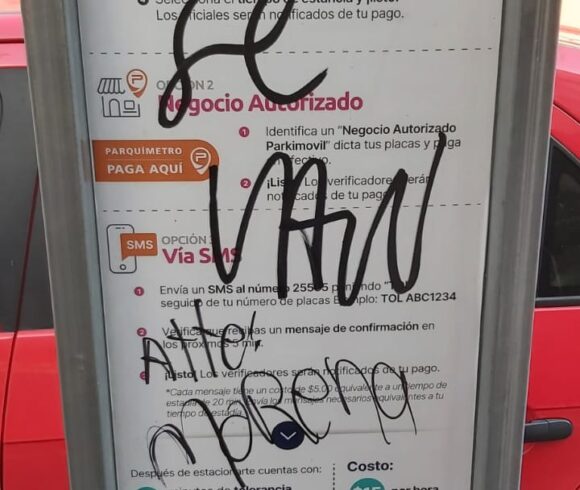 Los oficiales serán notificados de tu pago.
se
OPCIÓN 2
Negocio Autorizado
PARQUÍMETRO
PAGA AQUÍ
1 Identifica un "Negocio Autorizado
Parkimovil" dicta tus placas y paga
en efectivo.
2 ¡Listo! Los verificadores serán
notificados de tu pago.
VAN
SMS
OPCIÓN 3
Vía SMS
1 Envía un SMS al número 25565 poniendo "TOL"
seguido de tu número de placas Ejemplo: TOL ABC1234
2 Verifica que recibas un mensaje de confirmación en
los próximos 5 min.
Atto:
¡Listo! Los verificadores serán notificados de tu pago.
*Cada mensaje tiene un costo de $5.00 equivalente a un tiempo de
estadía de 20 min, envía los mensajes necesarios equivalentes a tu
tiempo de estadía.
Morena
Después de estacionarte cuentas con:
Costo:
minutos de tolerancia
$15 por hora